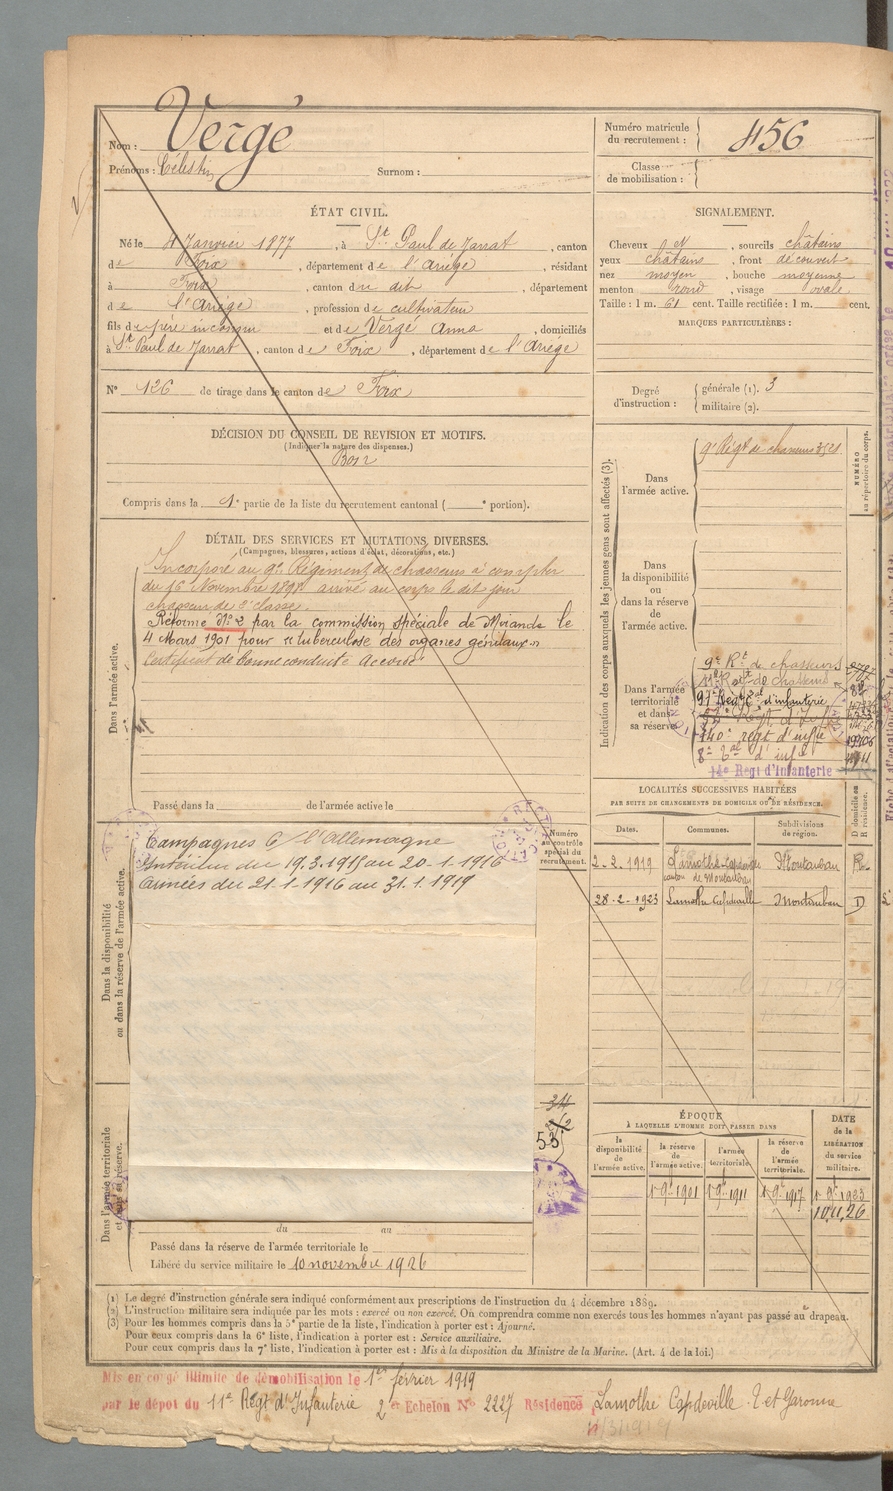 Nom : Vergé
Prénoms : Célestin Surnom :
Numéro matricule du recrutement : 456
Classe de mobilisation :
ÉTAT CIVIL.
Né le 4 Janvier 1877, à St Paul de Jarrat, canton
de Foix, département de l'Ariège, résidant
à Foix, canton du dit, département
de l'Ariège, profession de cultivateur
fils de père inconnu et de Vergé Anna, domiciliés
à St Paul de Jarrat, canton de Foix, département de l'Ariège
N° 126 de tirage dans le canton de Foix
SIGNALEMENT.
Cheveux N, sourcils châtains
yeux châtains, front découvert
nez moyen, bouche moyenne
menton rond, visage ovale
Taille : 1 m. 61 cent. Taille rectifiée : 1 m. cent.
MARQUES PARTICULIÈRES :
Degré d'instruction : générale (1). 3
militaire (2).
DÉCISION DU CONSEIL DE REVISION ET MOTIFS.
(Indiquer la nature des dispenses.)
Bon
Compris dans la 1e partie de la liste du recrutement cantonal ( e portion).
DÉTAIL DES SERVICES ET MUTATIONS DIVERSES.
(Campagnes, blessures, actions d'éclat, décorations, etc.)
Dans l'armée active.
Incorporé au 9e Régiment de chasseurs à compter
du 16 Novembre 1898 arrivé au corps le dit jour
chasseur de 2e classe.
Réformé N° 2 par la commission spéciale de Mirande le
4 Mars 1901 pour "tuberculose des organes génitaux"
Certificat de bonne conduite Accordé
Passé dans la de l'armée active le
Indication des corps auxquels les jeunes gens sont affectés (3).
NUMÉRO au répertoire du corps.
Dans l'armée active.
9e Régt de chasseurs
Dans la disponibilité ou dans la réserve de l'armée active.
Dans l'armée territoriale et dans sa réserve.
9e Rt de chasseurs
97e Regt d'infanterie
140e regt d'infie
8e Bal d'infie
14e Régt d'Infanterie
Dans la disponibilité ou dans la réserve de l'armée active.
Campagnes C/ l'Allemagne
Intérieur du 19.3.1915 au 20-1-1916
Armées du 21-1-1916 au 31.1.1919
Numéro au contrôle spécial du recrutement.
LOCALITÉS SUCCESSIVES HABITÉES
PAR SUITE DE CHANGEMENTS DE DOMICILE OU DE RÉSIDENCE.
Dates. Communes. Subdivisions de région. D domicile ou R résidence.
2-3.1919 Lamothe-Capdeville canton de Montauban Montauban R
28-2-1923 Lamothe Capdeville Montauban D
ÉPOQUE
À LAQUELLE L'HOMME DOIT PASSER DANS
la disponibilité de l'armée active. la réserve de l'armée active. l'armée territoriale. la réserve de l'armée territoriale. DATE de la LIBÉRATION du service militaire.
1 9e 1901 1 9e 1911 1 9e 1917 1 9e 1923
10.11.26
Dans l'armée territoriale et dans sa réserve.
53
du au
Passé dans la réserve de l'armée territoriale le
Libéré du service militaire le 10 novembre 1926
(1) Le degré d'instruction générale sera indiqué conformément aux prescriptions de l'instruction du 4 décembre 1889.
(2) L'instruction militaire sera indiquée par les mots : exercé ou non exercé. On comprendra comme non exercés tous les hommes n'ayant pas passé au drapeau.
(3) Pour les hommes compris dans la 5e partie de la liste, l'indication à porter est : Ajourné.
Pour ceux compris dans la 6e liste, l'indication à porter est : Service auxiliaire.
Pour ceux compris dans la 7e liste, l'indication à porter est : Mis à la disposition du Ministre de la Marine. (Art. 4 de la loi.)
Mis en congé illimité de démobilisation le 1er février 1919
par le dépôt du 11e Régt d'Infanterie 2e Echelon N° 2227 Résidence Lamothe Capdeville T et Garonne